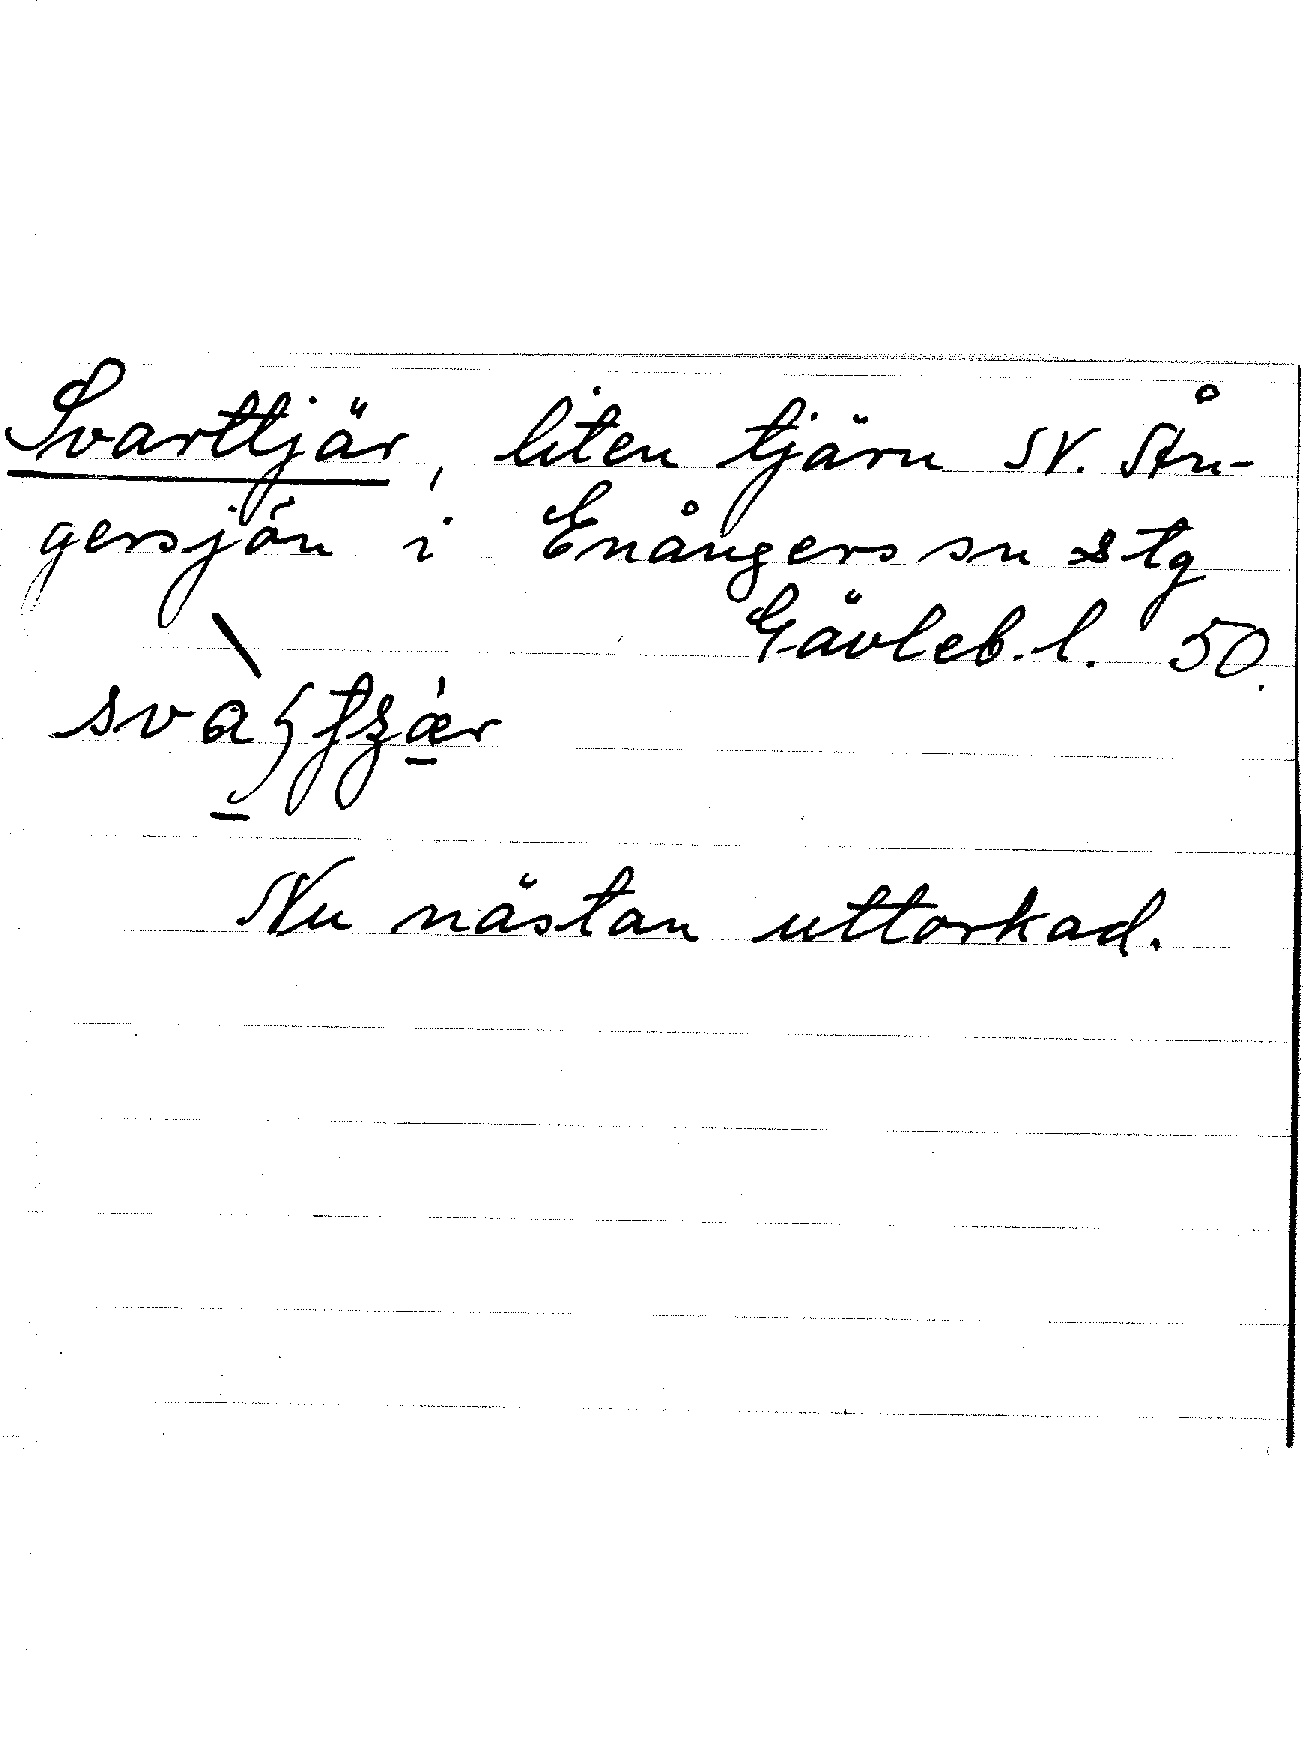 Svarttjär, liten tjärn SV. Ån-
gersjön i Enångers sn & tg
Gävleb. l. 50.
Nu nästan uttorkad.